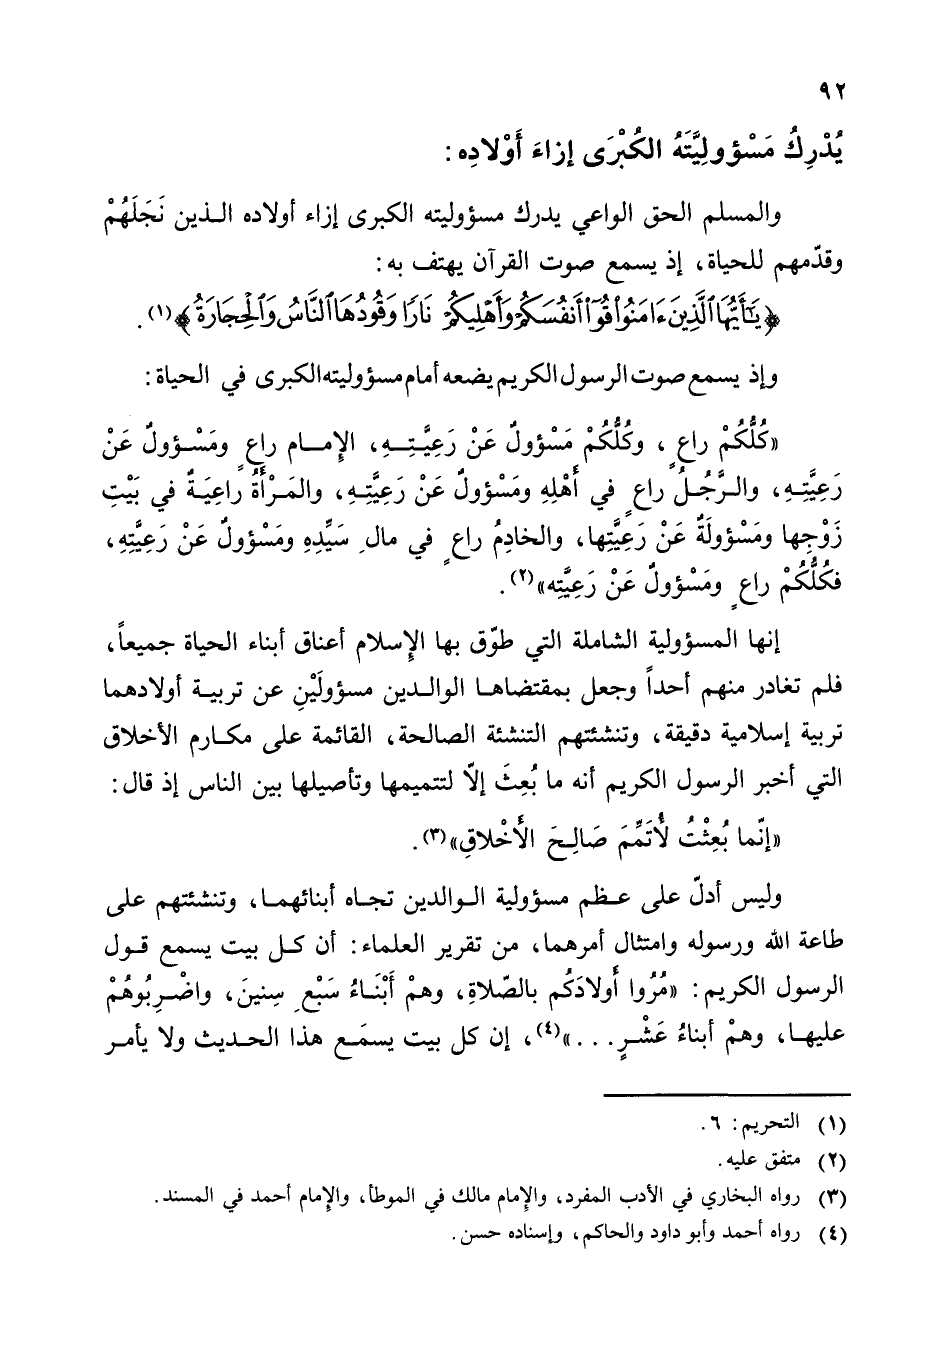 ٩٢
يُدْرِكُ مَسْؤولِيَّتَهُ الكُبْرَى إزاءَ أَوْلادِه :
والمسلم الحق الواعي يدرك مسؤوليته الكبرى إزاء أولاده الـذين نَجَلَهُمْ
وقدّمهم للحياة، إذ يسمع صوت القرآن يهتف به :
﴿ يَٰٓأَيُّهَا ٱلَّذِينَ ءَامَنُوا۟ قُوٓا۟ أَنفُسَكُمْ وَأَهْلِيكُمْ نَارًا وَقُودُهَا ٱلنَّاسُ وَٱلْحِجَارَةُ ﴾(١) .
وإذ يسمع صوت الرسول الكريم يضعه أمام مسؤوليته الكبرى في الحياة :
«كُلُّكُمْ راعٍ ، وكُلُّكُمْ مَسْؤولٌ عَنْ رَعِيَّـتِــهِ، الإمــام راعٍ ومَسْـؤولٌ عَنْ
رَعِيَّتِـهِ، والـرَّجُـلُ راعٍ في أَهْلِهِ ومَسْؤولٌ عَنْ رَعِيَّتِهِ، والمَـرْأَةُ راعِيَـةٌ في بَيْتِ
زَوْجِها ومَسْؤولَةٌ عَنْ رَعِيَّتِها، والخادِمُ راعٍ في مالِ سَيِّدِهِ ومَسْؤولٌ عَنْ رَعِيَّتِهِ،
فكُلُّكُمْ راعٍ ومَسْؤولٌ عَنْ رَعِيَّتِه»(٢) .
إنها المسؤولية الشاملة التي طوّق بها الإسلام أعناق أبناء الحياة جميعاً،
فلم تغادر منهم أحداً وجعل بمقتضاهـا الوالـدين مسؤولَيْنِ عن تربيـة أولادهما
تربية إسلامية دقيقة، وتنشئتهم التنشئة الصالحة، القائمة على مكـارم الأخلاق
التي أخبر الرسول الكريم أنه ما بُعِثَ إلّا لتتميمها وتأصيلها بين الناس إذ قال :
«إنّما بُعِثْتُ لأُتَمِّمَ صَالِـحَ الأَخْلاقِ»(٣) .
وليس أدلّ على عـظم مسؤولية الـوالدين تجـاه أبنائهمـا، وتنشئتهم على
طاعة الله ورسوله وامتثال أمرهما، من تقرير العلماء : أن كـل بيت يسمع قـول
الرسول الكريم : «مُرُوا أَولادَكُم بالصّلاةِ، وهمْ أَبْنَـاءُ سَبْعِ سِنينَ، واضْـرِبُوهُمْ
عليهـا، وهمْ أبناءُ عَشْـرٍ . . .»(٤)، إن كل بيت يسمَـع هذا الحـديث ولا يأمـر
(١) التحريم : ٦ .
(٢) متفق عليه .
(٣) رواه البخاري في الأدب المفرد، والإمام مالك في الموطأ، والإمام أحمد في المسند .
(٤) رواه أحمد وأبو داود والحاكم، وإسناده حسن .